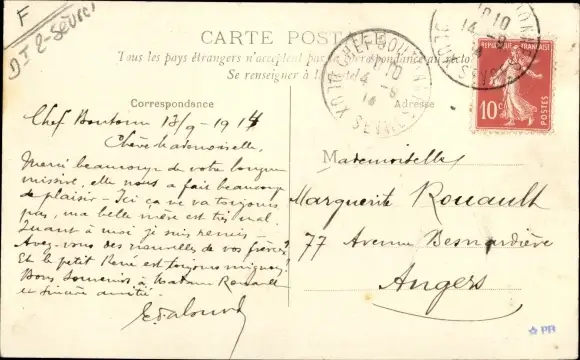 F
DI 2-Sèvres
CARTE POSTALE
Tous les pays étrangers n'acceptent pas la correspondance au recto
Se renseigner à la
Correspondance
Chef Boutonne 13/9-1914
Chère Mademoiselle,
Merci beaucoup de votre longue
missive, elle nous a fait beaucoup
de plaisir - Ici ça ne va toujours
pas, ma belle mère est très mal.
Quant à moi je suis remis -
Avez-vous des nouvelles de vos frères?
Et le petit René est toujours mignon?
Bons Souvenirs à Madame Rouault
et sincère amitié.
Adresse
Mademoiselle
Marguerite Rouault
77 Avenue Besnardière
Angers
CHEF-BOUTONNE
10
14 -9
14
DEUX SÈVRES
10
14 -9
14
DEUX SÈVRES
REPUBLIQUE FRANÇAISE
10c
POSTES
PR